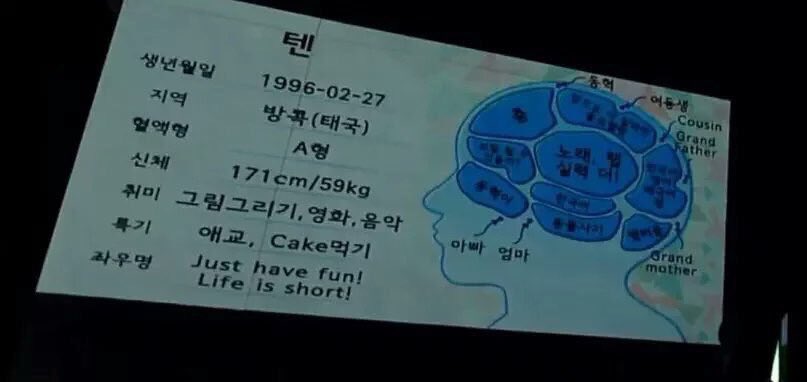 텐
생년월일 1996-02-27
지역 방콕(태국)
혈액형 A형
신체 171cm/59kg
취미 그림그리기,영화,음악
특기 애교, Cake먹기
좌우명 Just have fun!
Life is short!
동혁
여동생
Cousin
Grand
Father
춤
노래, 랩
실력 더!
한국어
동혁이
동물사기
아빠 엄마
Grand
mother